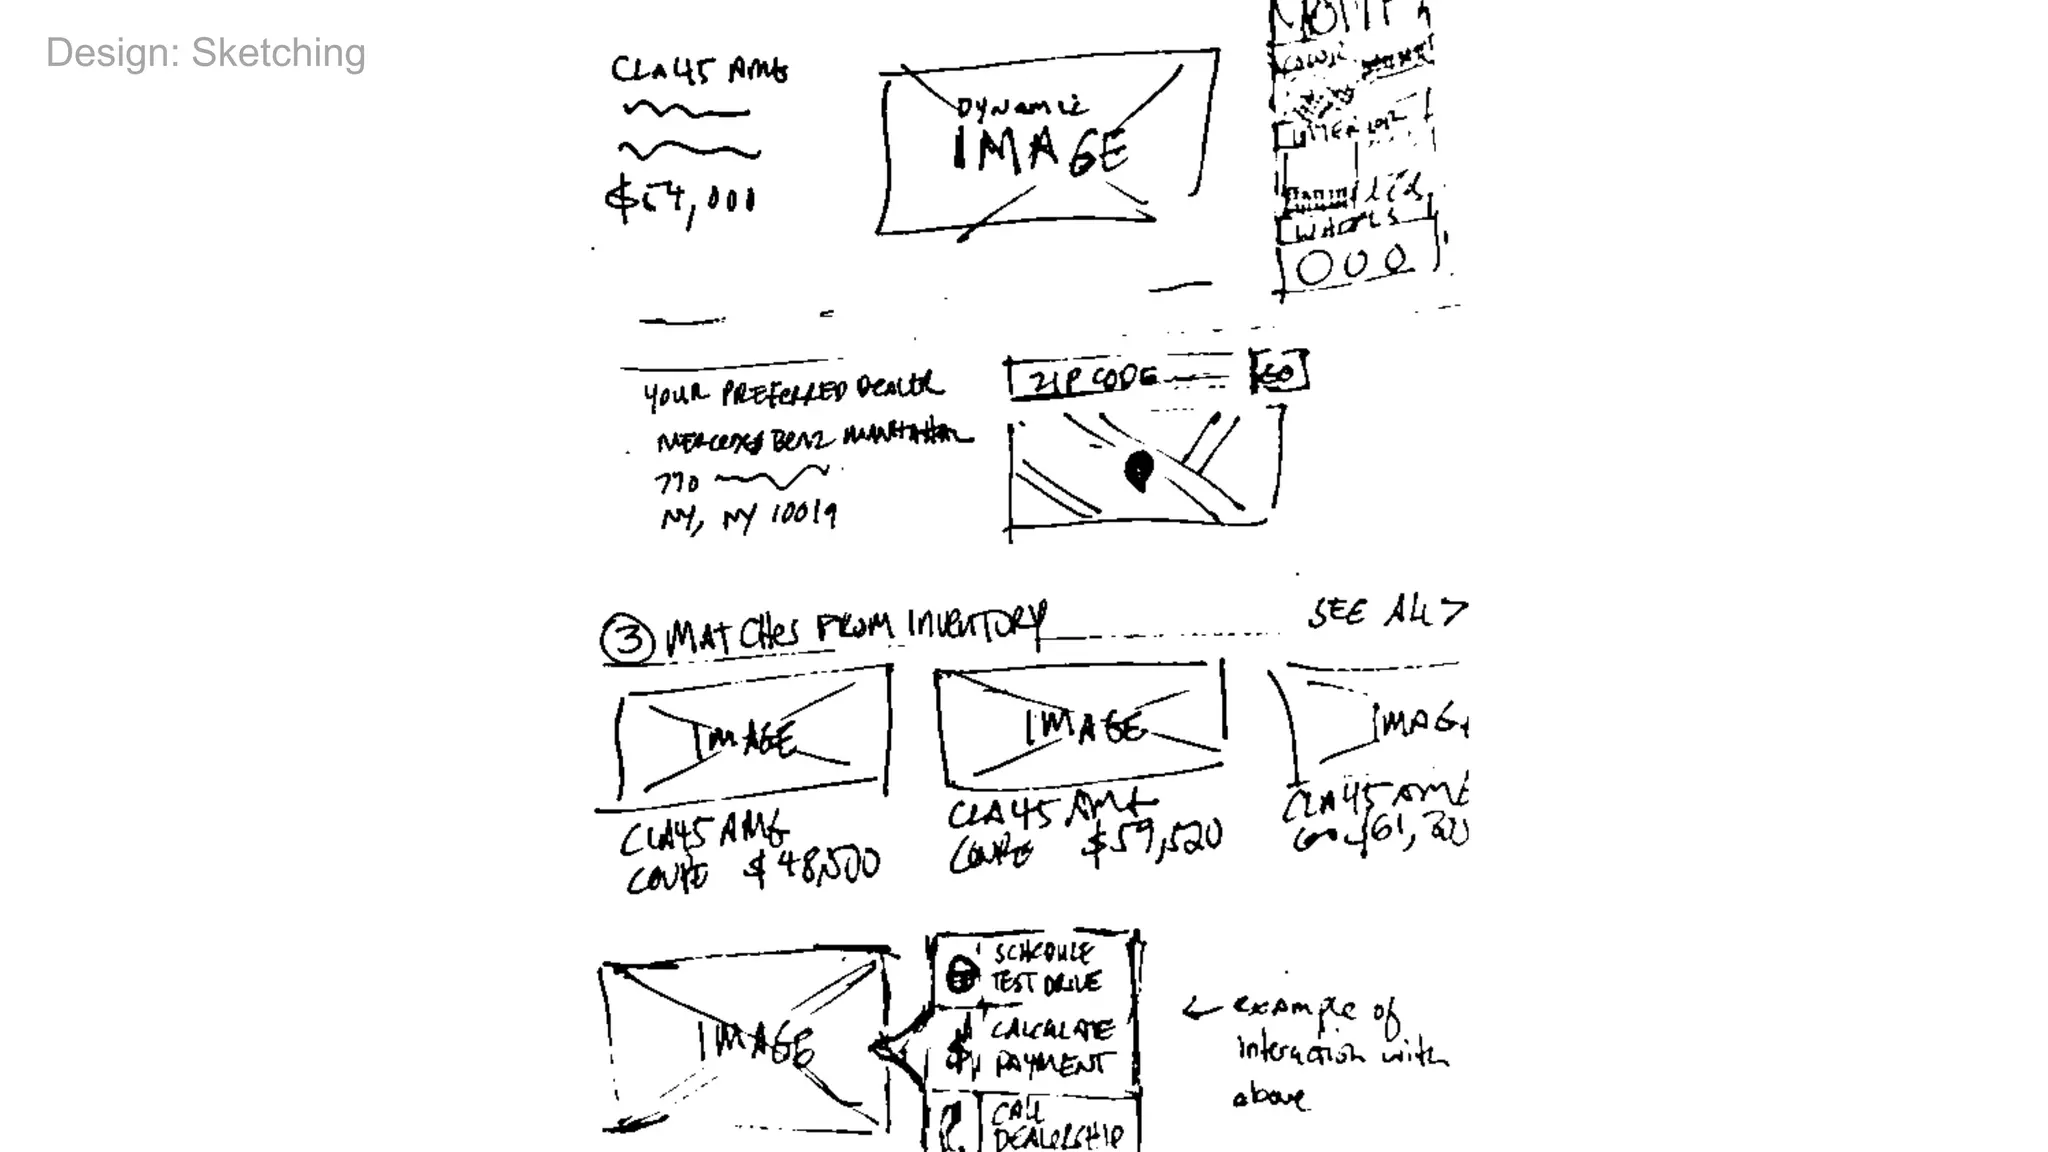 Design: Sketching
CLA45 AMG
DYNAMIC
IMAGE
WHEELS
YOUR PREFERRED DEALER
MERCEDES BENZ MANHATTAN
770
NY, NY 10019
ZIP CODE
GO
3 MATCHES FROM INVENTORY
SEE ALL >
IMAGE
IMAGE
IMAG
CLA45 AMG
COUPE $48,500
CLA45 AMG
COUPE $59,520
CLA45 AMG
IMAGE
SCHEDULE
TEST DRIVE
CALCULATE
PAYMENT
CALL
DEALERSHIP
← example of
interaction with
above